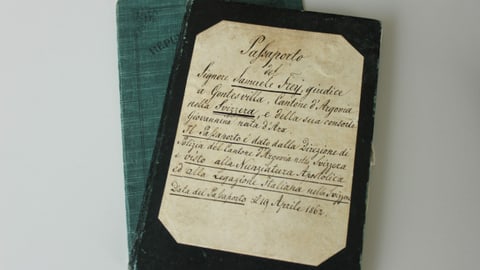 REPU
Passaporto
del
Signore Samuele Frey, giudice
a Gontesvilla, Cantone d'Argovia
nella Svizzera, e della sua consorte
Giovannina nata d'Arx.
Il Passaporto è dato dalla Direzione di
Polizia del Cantone d'Argovia nella Svizzera
e visto alla Nunziatura Apostolica
ed alla Legazione Italiana nella Svizzera
Data del Passaporto 19 Aprile 1862.